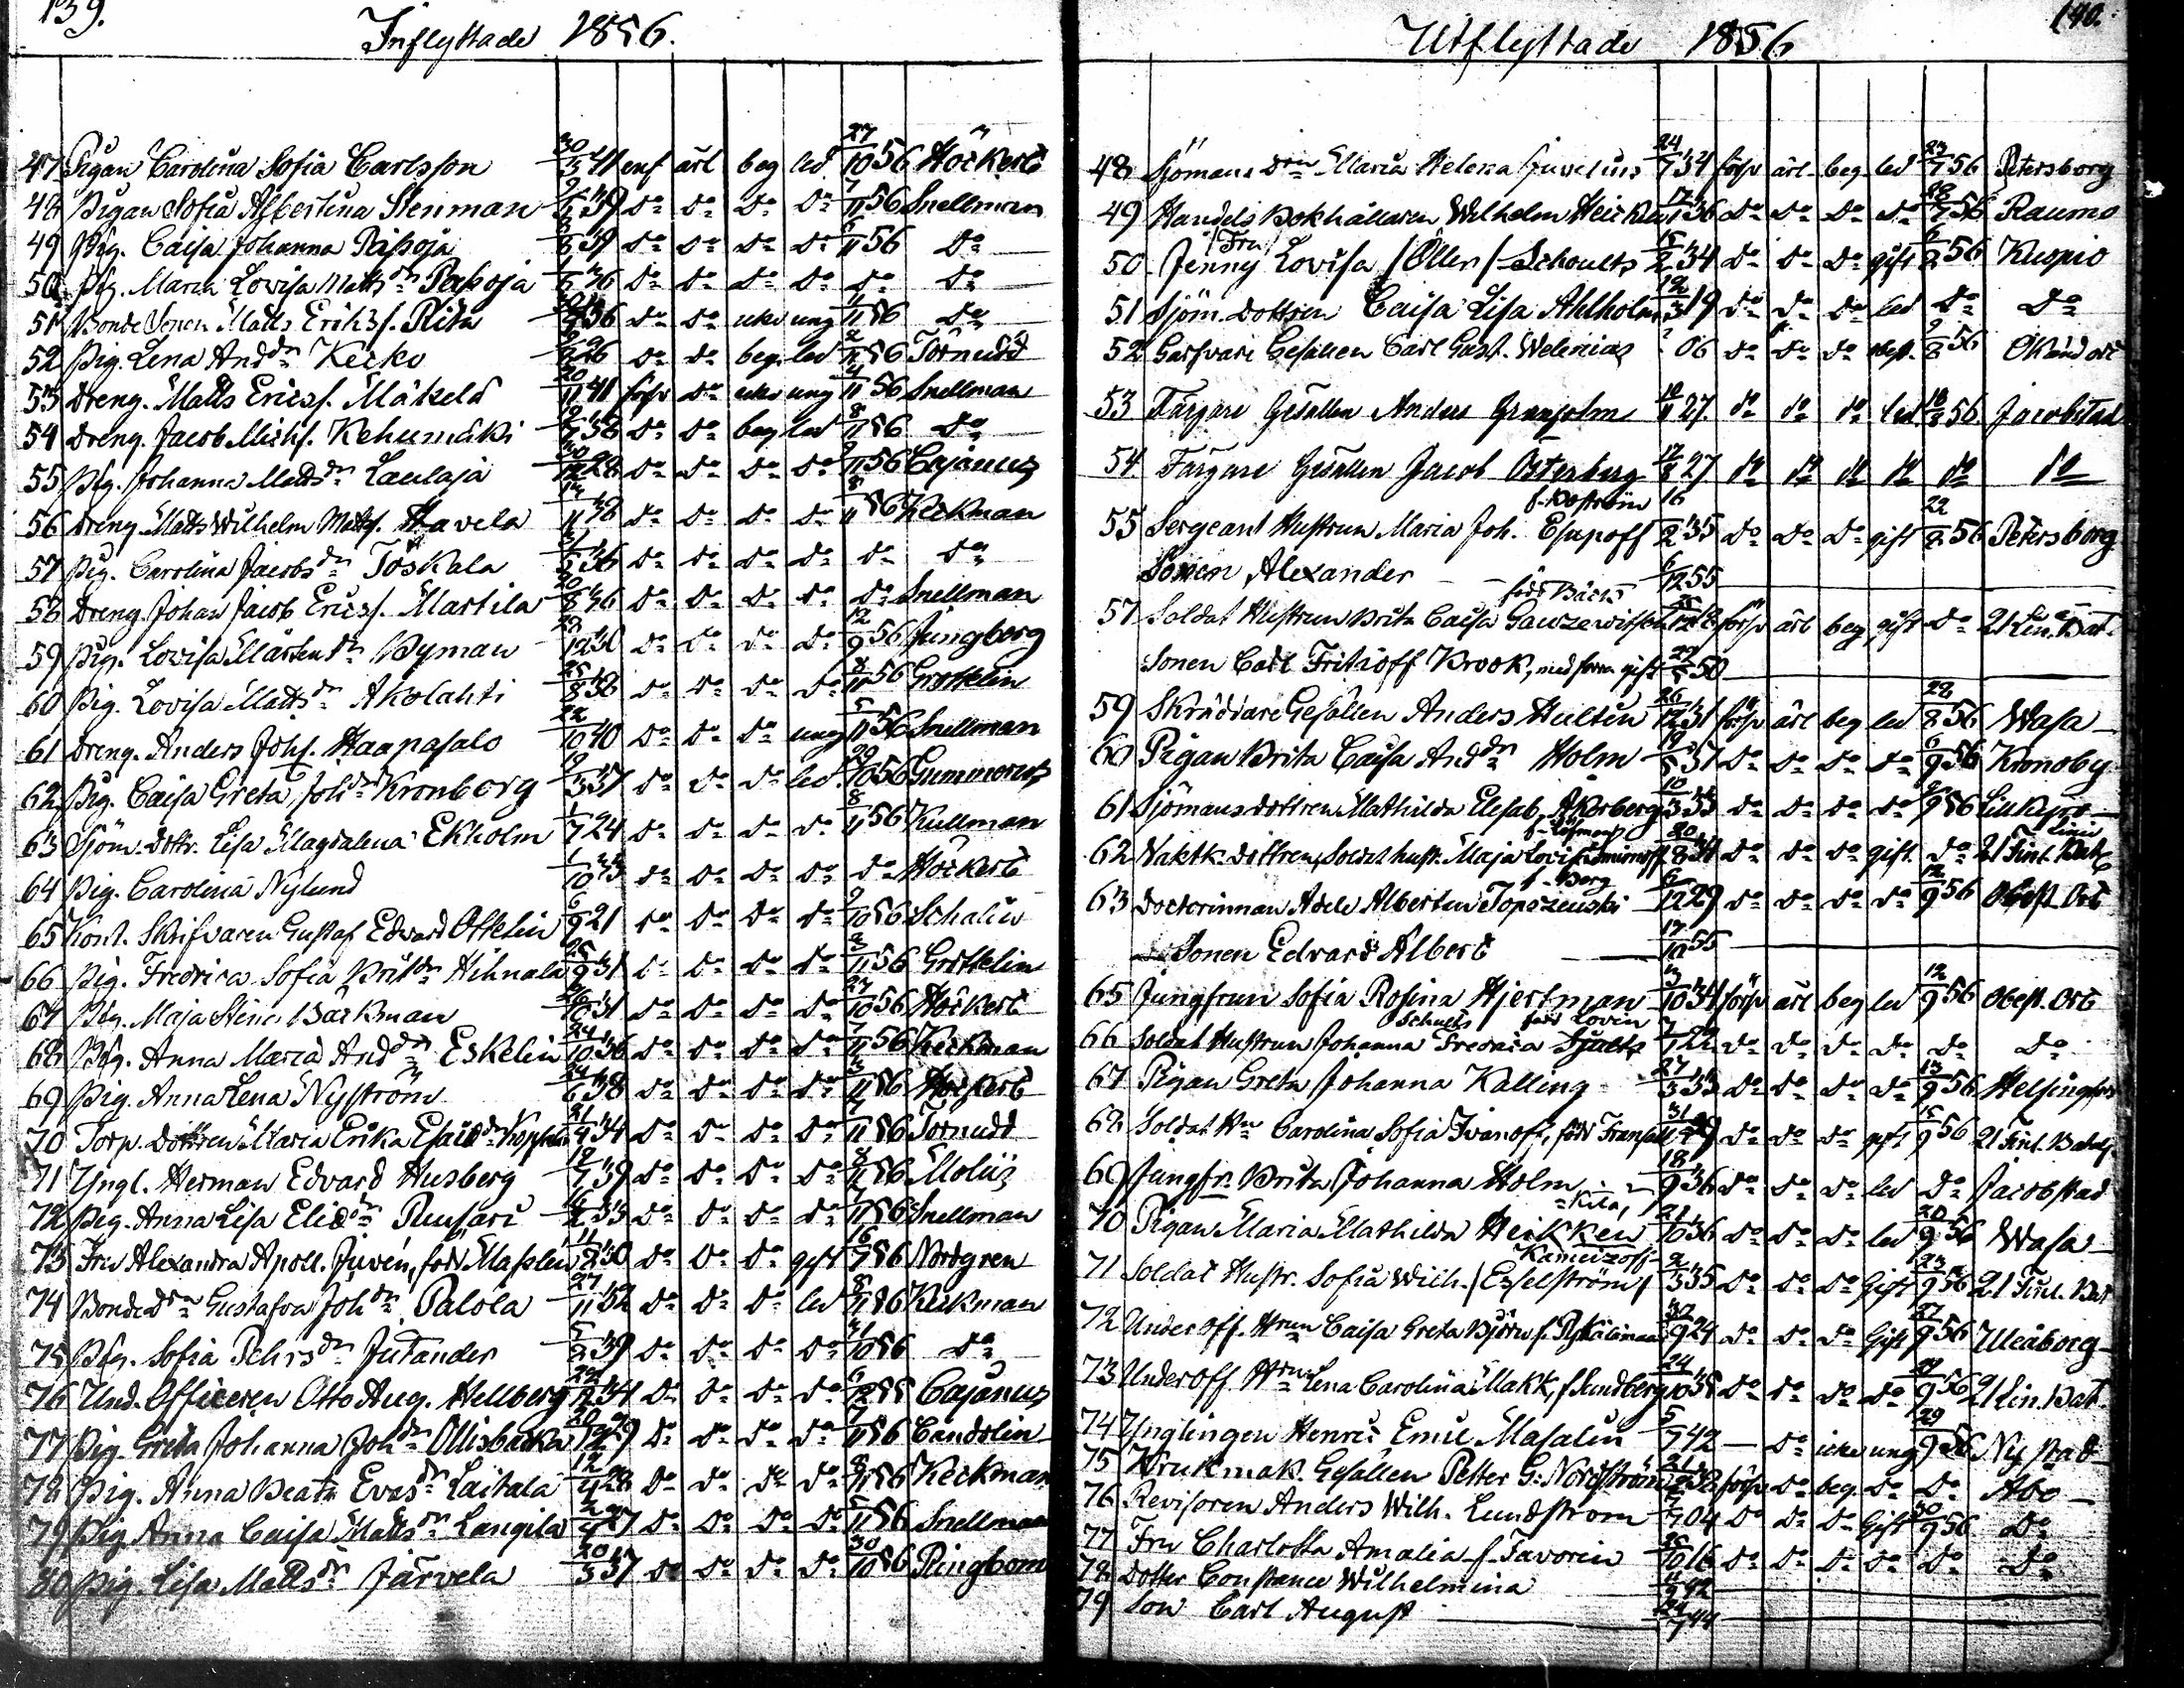 139.
Inflyttade 1856.
47 Pigan Carolina Sofia Carlsson 30/3 41 enf ärl beg led 27/10 56 Höckert
48 Pigan Sofia Albertina Stenman 39 do do do do 7/11 56 Snellman
49 Pig. Caisa Johanna Passoja 39 do do do do 6/11 56 do
50 Pig. Maria Lovisa Matts dr Passoja 36 do do do do do do
51 Bonde Sonen Matts Eriks. Rita 36 do do icke ung 11/11 56 do
52 Pig. Lena And dr Kecko 26 do do beg. led 2/11 56 Törnudd
53 Dreng. Matts Ericss. Mäkelä 20/11 41 förs do icke ung 4/11 56 Snellman
54 Dreng. Jacob Michs. Kehumäki 38 do do beg led 8/11 56 do
55 Pig. Johanna Matts dr Laulaja 30/12 28 do do do do 9/11 56 Cajanus
56 Dreng Matts Wilhelm Matss. Havela 38 do do do do 8/11 56 Keckman
57 Pig. Carolina Jacobs dr Töskala 36 do do do do do do
58 Dreng. Johan Jacob Ericss. Martila 20/8 36 do do do do do Snellman
59 Pig. Lovisa Mårtens dr Byman 30 do do do do 12/9 56 Jungberg
60 Pig. Lovisa Matts dr Akolahti 25/8 38 do do do do 56 Grottelin
61 Dreng. Anders Johs. Haapasalo 22/10 40 do do do ung 5/11 56 Snellman
62 Pig. Caisa Greta Joh dr Kronborg 19/3 37 do do do led 29/10 56 Gummerus
63 Sjöm. Dottr. Lisa Magdalena Ekholm 1/7 24 do do do do 8/11 56 Kullman
64 Pig. Carolina Nylund 1/10 33 do do do do do Höckert
65 Kont. Skrifvaren Gustaf Edward Ottelin 6/9 21 do do do do 9/10 56 Schalin
66 Pig. Fredrica Sofia Hihnala 25/9 31 do do do do 3/11 56 Grottelin
67 Pig. Maja Stina Bäckman 31 do do do do 27/10 56 Höckert
68 Pig. Anna Maria And dr Eskelin 24/10 36 do do do do 7/11 56 Keckman
69 Pig. Anna Lena Nyström 24/6 38 do do do do 3/11 56 Höckert
70 Torp. Dottren Maria Erika Esai dr 21/4 34 do do do do 7/11 56 Törnudd
71 Yngl. Herman Edvard Husberg 12/7 39 do do do do 8/11 56 Moliis
72 Pig. Anna Lisa Elid dr Ruusari 16/2 33 do do do do 7/11 56 Snellman
73 Fru Alexandra Apoll. Juvén, född Masalin 11/2 30 do do do gift 16/7 56 Nordgren
74 Bonde D ren Gustafva Joh dr Palola 27/11 32 do do do led 8/11 56 Keckman
75 Pig. Sofia Pehrs dr Jutander 5/2 39 do do do do 31/10 56 do
76 Und. Officeren Otto Aug. Hellberg 22/12 34 do do do do 6/12 55 Cajanus
77 Pig. Greta Johanna Joh dr Ollisbacka 20/12 29 do do do do 7/11 56 Candelin
78 Pig. Anna Beata Evas dr Laitala 12/4 28 do do do do 8/11 56 Keckman
79 Pig Anna Caisa Matts dr Langila 37 do do do do 5/11 56 Snellman
80 Pig. Lisa Matts dr Järvela 20/3 37 do do do do 30/10 56 Ringbom
140.
Utflyttade 1856
48 Sjömans D ren Maria Helena Juvelius 24/7 34 förs ärl beg led 23/7 56 Petersborg
49 Handels Bokhållaren Wilhelm Heicken 17/1 36 do do do do 28/7 56 Raumo
(Fru)
50 Jenny Lovisa /Öller/ Schoults 15/2 34 do do do gift 6/8 56 Kuopio
51 Sjöm. Dottren Caisa Lisa Ahlholm 12/3 19 do do do led do do
52 Garfvare Gesällen Carl Gust. Welenias ? 06 do do do 9/8 56 Okänd ort
53 Färgare Gesällen Anders Granholm 27 do do do led 18/8 56. Jacobstad
54. Färgare Gesällen Jacob Österberg 12/8 27 do do do do do do
f. Boström
55 Sergeant Hustrun Maria Joh. Esupoff 16/2 35 do do do gift 22/8 56 Petersborg
Sonen Alexander 6/12 55
född Bäck
57 Soldat Hustrun Brita Caisa Gauzewitsch förs ärl beg gift do 21 Lin. Bat.
Sonen Carl Frithioff Brook, 50
59 Skräddare Gesällen Anders Hultin 26/12 31 förs ärl beg led 28/8 56 Wasa
60 Pigan Brita Caisa And dr Holm 19/5 37 do do do do 6/9 56 Kronoby
61 Sjömans dottren Mathilda Elisab. Åkerberg 10/3 33 do do do do 9/9 56 Lillkyro
62 Vaktk. Dottren, Soldat hust. Maja Lovisa Smirnoff 20/8 34 do do do gift do 21 Finl. Linie Bat.
f. Berg
63 Doctorinnan Adele Albertina Topszewski 6/12 29 do do do do 12/9 56 Obest. Ort
Sonen Edvard Albert 17/10 55
65 Jungfrun Sofia Rosina Hjertman 3/10 34 förs ärl beg led 12/9 56 Obest. Ort
Schults född Lovin
66 Soldat Hustrun Johanna Fredrica 22 do do do do do do
67 Pigan Greta Johanna Kalling 27/3 33 do do do do 13/9 56 Helsingfors
68 Soldat H un Carolina Sofia Ivanoff, född 29 do do do gift 15/9 56 21 Finl. Batalj.
69 Jungfr. Brita Johanna Holm 18/9 36 do do do led do Jacobstad
70 Pigan Maria Mathilda Heikken 21/10 36 do do do led 20/9 56 Wasa
Kameizoff
71 Soldat Hustr. Sofia Wilh. /Enselström/ 2/3 35 do do do Gift 23/9 56 21 Finl. Bat
72 Under Off. H run Caisa Greta Björn f. 24 do do do Gift 27/9 56 Uleåborg
73 Under Off H run Lena Carolina Makk, f. Sundberg 24/10 35 do do do do 27/9 56 21 Lin. Bat.
74 Ynglingen Henric Emil Masalin 5/7 42 — do icke ung 29/9 56 Nystad
75 Krukmak. Gesällen Petter G. Nordström förs do beg. do do Åbo
76 Revisoren Anders Wilh. Lundström 04 do do do Gift 30/9 56 do
77 Fru Charlotta Amalia f. Favorin 26/10 16 do do do do do do
78 Dotter Constance Wilhelmina 42
79 Son Carl August 44